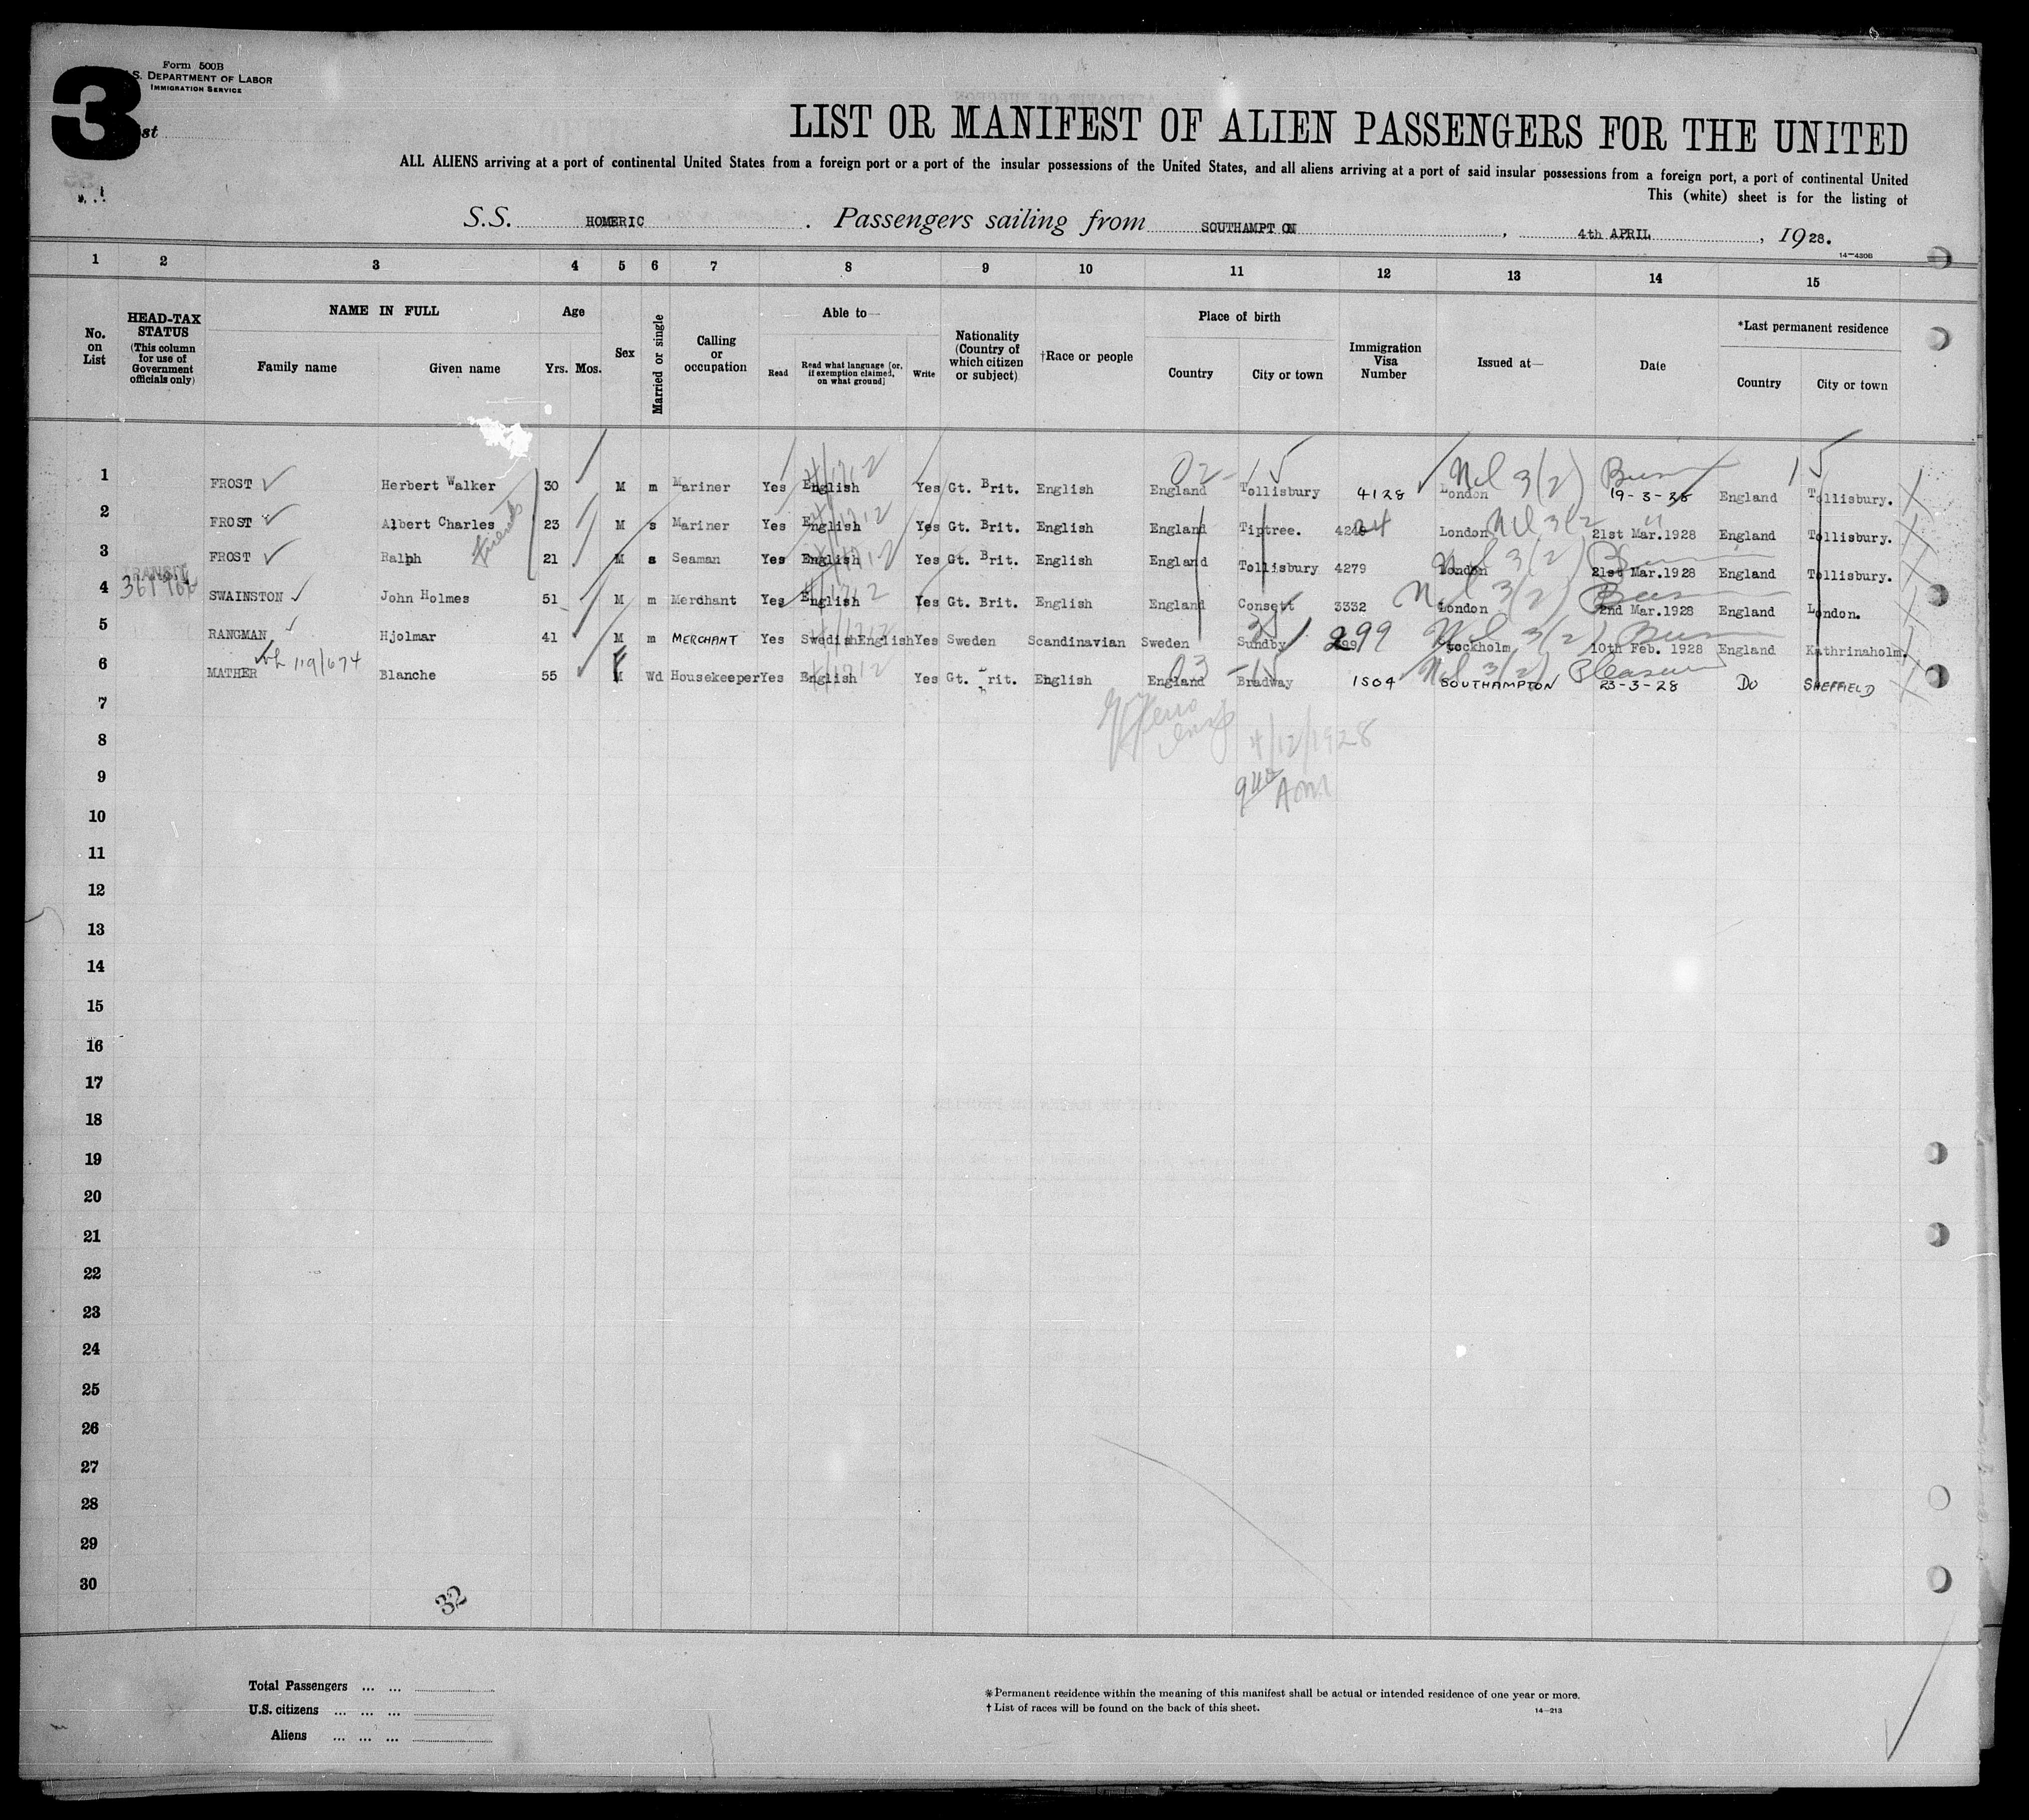 Form 500B
U.S. DEPARTMENT OF LABOR
IMMIGRATION SERVICE
3
LIST OR MANIFEST OF ALIEN PASSENGERS FOR THE UNITED
ALL ALIENS arriving at a port of continental United States from a foreign port or a port of the insular possessions of the United States, and all aliens arriving at a port of said insular possessions from a foreign port, a port of continental United
This (white) sheet is for the listing of
S.S. HOMERIC. Passengers sailing from SOUTHAMPTON, 4th APRIL, 1928.
14—430B
1 2 3 4 5 6 7 8 9 10 11 12 13 14 15
No. on List
HEAD-TAX STATUS (This column for use of Government officials only)
NAME IN FULL
Family name Given name
Age Yrs. Mos.
Sex
Married or single
Calling or occupation
Able to— Read Read what language [or, if exemption claimed, on what ground] Write
Nationality (Country of which citizen or subject)
†Race or people
Place of birth Country City or town
Immigration Visa Number
Issued at—
Date
*Last permanent residence Country City or town
1 FROST Herbert Walker 30 M m Mariner Yes English Yes Gt. Brit. English England Tollisbury 4128 London 19-3-28 England Tollisbury.
2 FROST Albert Charles 23 M s Mariner Yes English Yes Gt. Brit. English England Tiptree. London 21st Mar.1928 England Tollisbury.
3 FROST Ralph 21 M s Seaman Yes English Yes Gt. Brit. English England Tollisbury 4279 London 21st Mar.1928 England Tollisbury.
TRANSIT
4 SWAINSTON John Holmes 51 M m Merchant Yes English Yes Gt. Brit. English England Consett 3332 London 2nd Mar.1928 England London.
5 RANGMAN Hjolmar 41 M m MERCHANT Yes SwedishEnglish Yes Sweden Scandinavian Sweden Sundby 299 Stockholm 10th Feb. 1928 England Kathrinaholm.
119/674
6 MATHER Blanche 55 Wd Housekeeper Yes English Yes Gt. Brit. English England Bradway 1504 SOUTHAMPTON Pleasure 23-3-28 Do SHEFFIELD
7
8 4/12/1928
9
10
11
12
13
14
15
16
17
18
19
20
21
22
23
24
25
26
27
28
29
30
32
Total Passengers ... ...
U.S. citizens ... ... ...
Aliens ... ... ...
*Permanent residence within the meaning of this manifest shall be actual or intended residence of one year or more.
† List of races will be found on the back of this sheet.
14—213